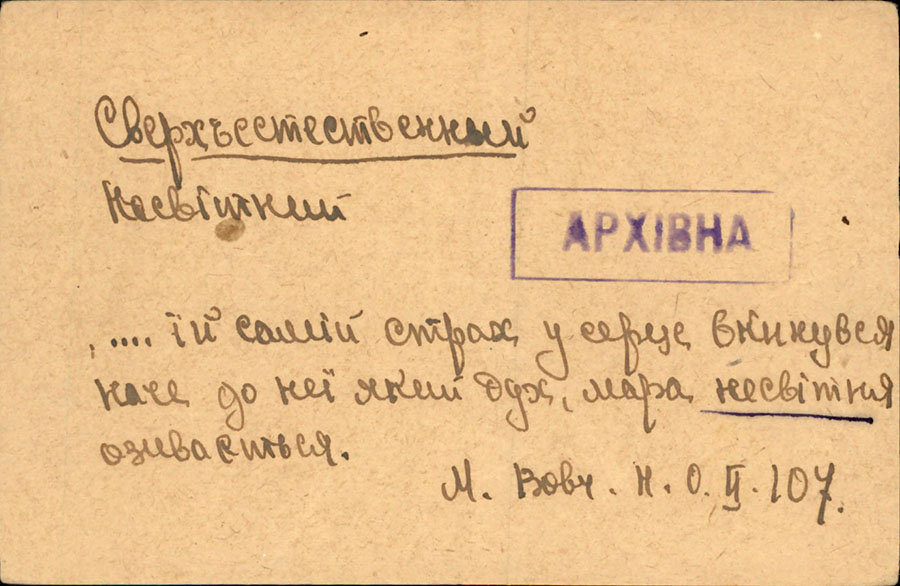 Сверхъестественный
Несвітний
АРХІВНА
, .... їй самій страх у серце вкинувся
наче до неї який дух, мара несвітня
озивається.
М. Вовч. Н. О. II. 107.